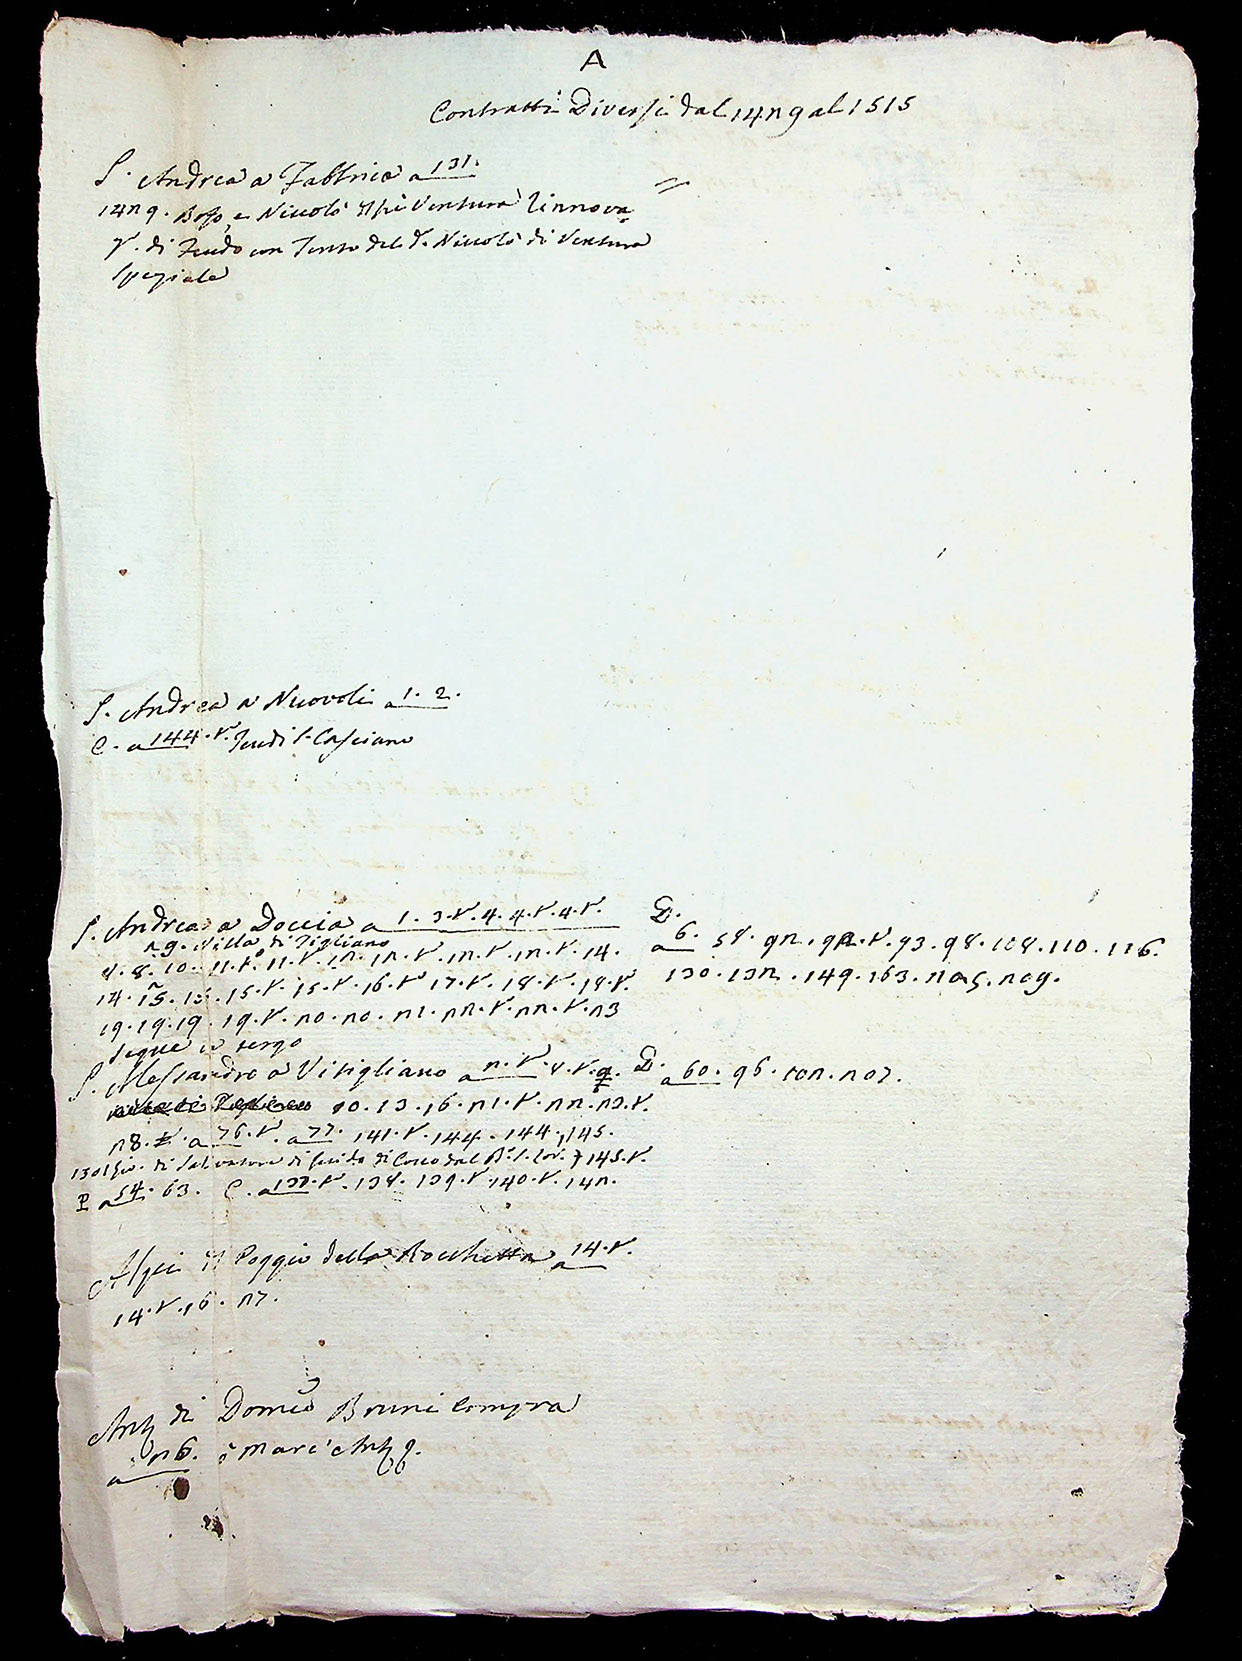 A
Contratti Diversi dal 1429 al 1515
S. Andrea a Fabbrica a 131.
1429. e Niccolò Ventura Rinnova
di Feudo con del d. Niccolò di Ventura
Speziale
S. Andrea a Nuovoli a 1. 2.
C. a 144. v. S. Casciano
S. Andrea a Doccia a 1. 3. v. 4. 4. v. 4. v.
29. Villa di Tigliano
8. 8. 10. 11. v. 11. v. 12. 12. v. 12. v. 12. v. 14.
14. 15. 15. 15. v. 15. v. 16. v. 17. v. 18. v. 18. v.
19. 19. 19. 19. v. 20. 20. 21. 22. v. 22. v. 23
segue a tergo
D.
a 6. 58. 92. 92. v. 93. 98. 108. 110. 116.
130. 132. 149. 163. 205. 209.
S. Alessandro a Vitigliano a 2. v. 8. v. 9. D. a 60. 96. 102. 207.
10. 13. 16. 21. v. 22. 23. v.
28. a 76. v. a 77. 141. v. 144. 144. 145.
di Salvatore di Guido di Cocco dal 145. v.
P a 54. 63. C. a 137. v. 138. 139. v. 140. v. 142.
Alpi il Poggio della Rocchetta a 14. v.
14. v. 16. 27.
Ant. di Domco Bruni compra
a 26.